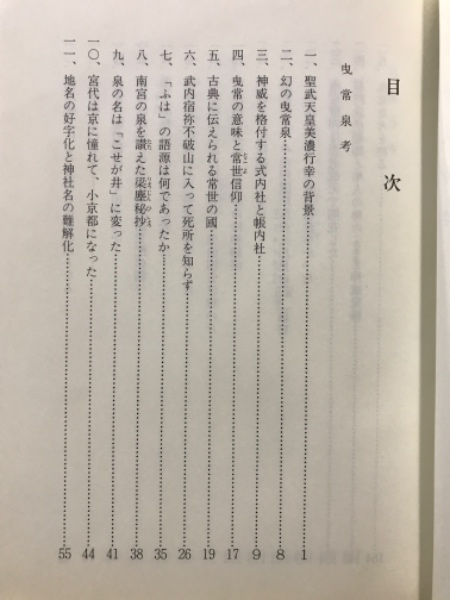 目次
曳常泉考
一、聖武天皇美濃行幸の背景……1
二、幻の曳常泉……8
三、神威を格付する式内社と帳内社……9
四、曳常の意味と常世信仰……17
五、古典に伝えられる常世の國……19
六、武内宿祢不破山に入って死所を知らず……26
七、「ふは」の語源は何であったか……35
八、南宮の泉を讃えた梁塵秘抄……38
九、泉の名は「こせが井」に変った……41
一〇、宮代は京に憧れて、小京都になった……44
一一、地名の好字化と神社名の難解化……55